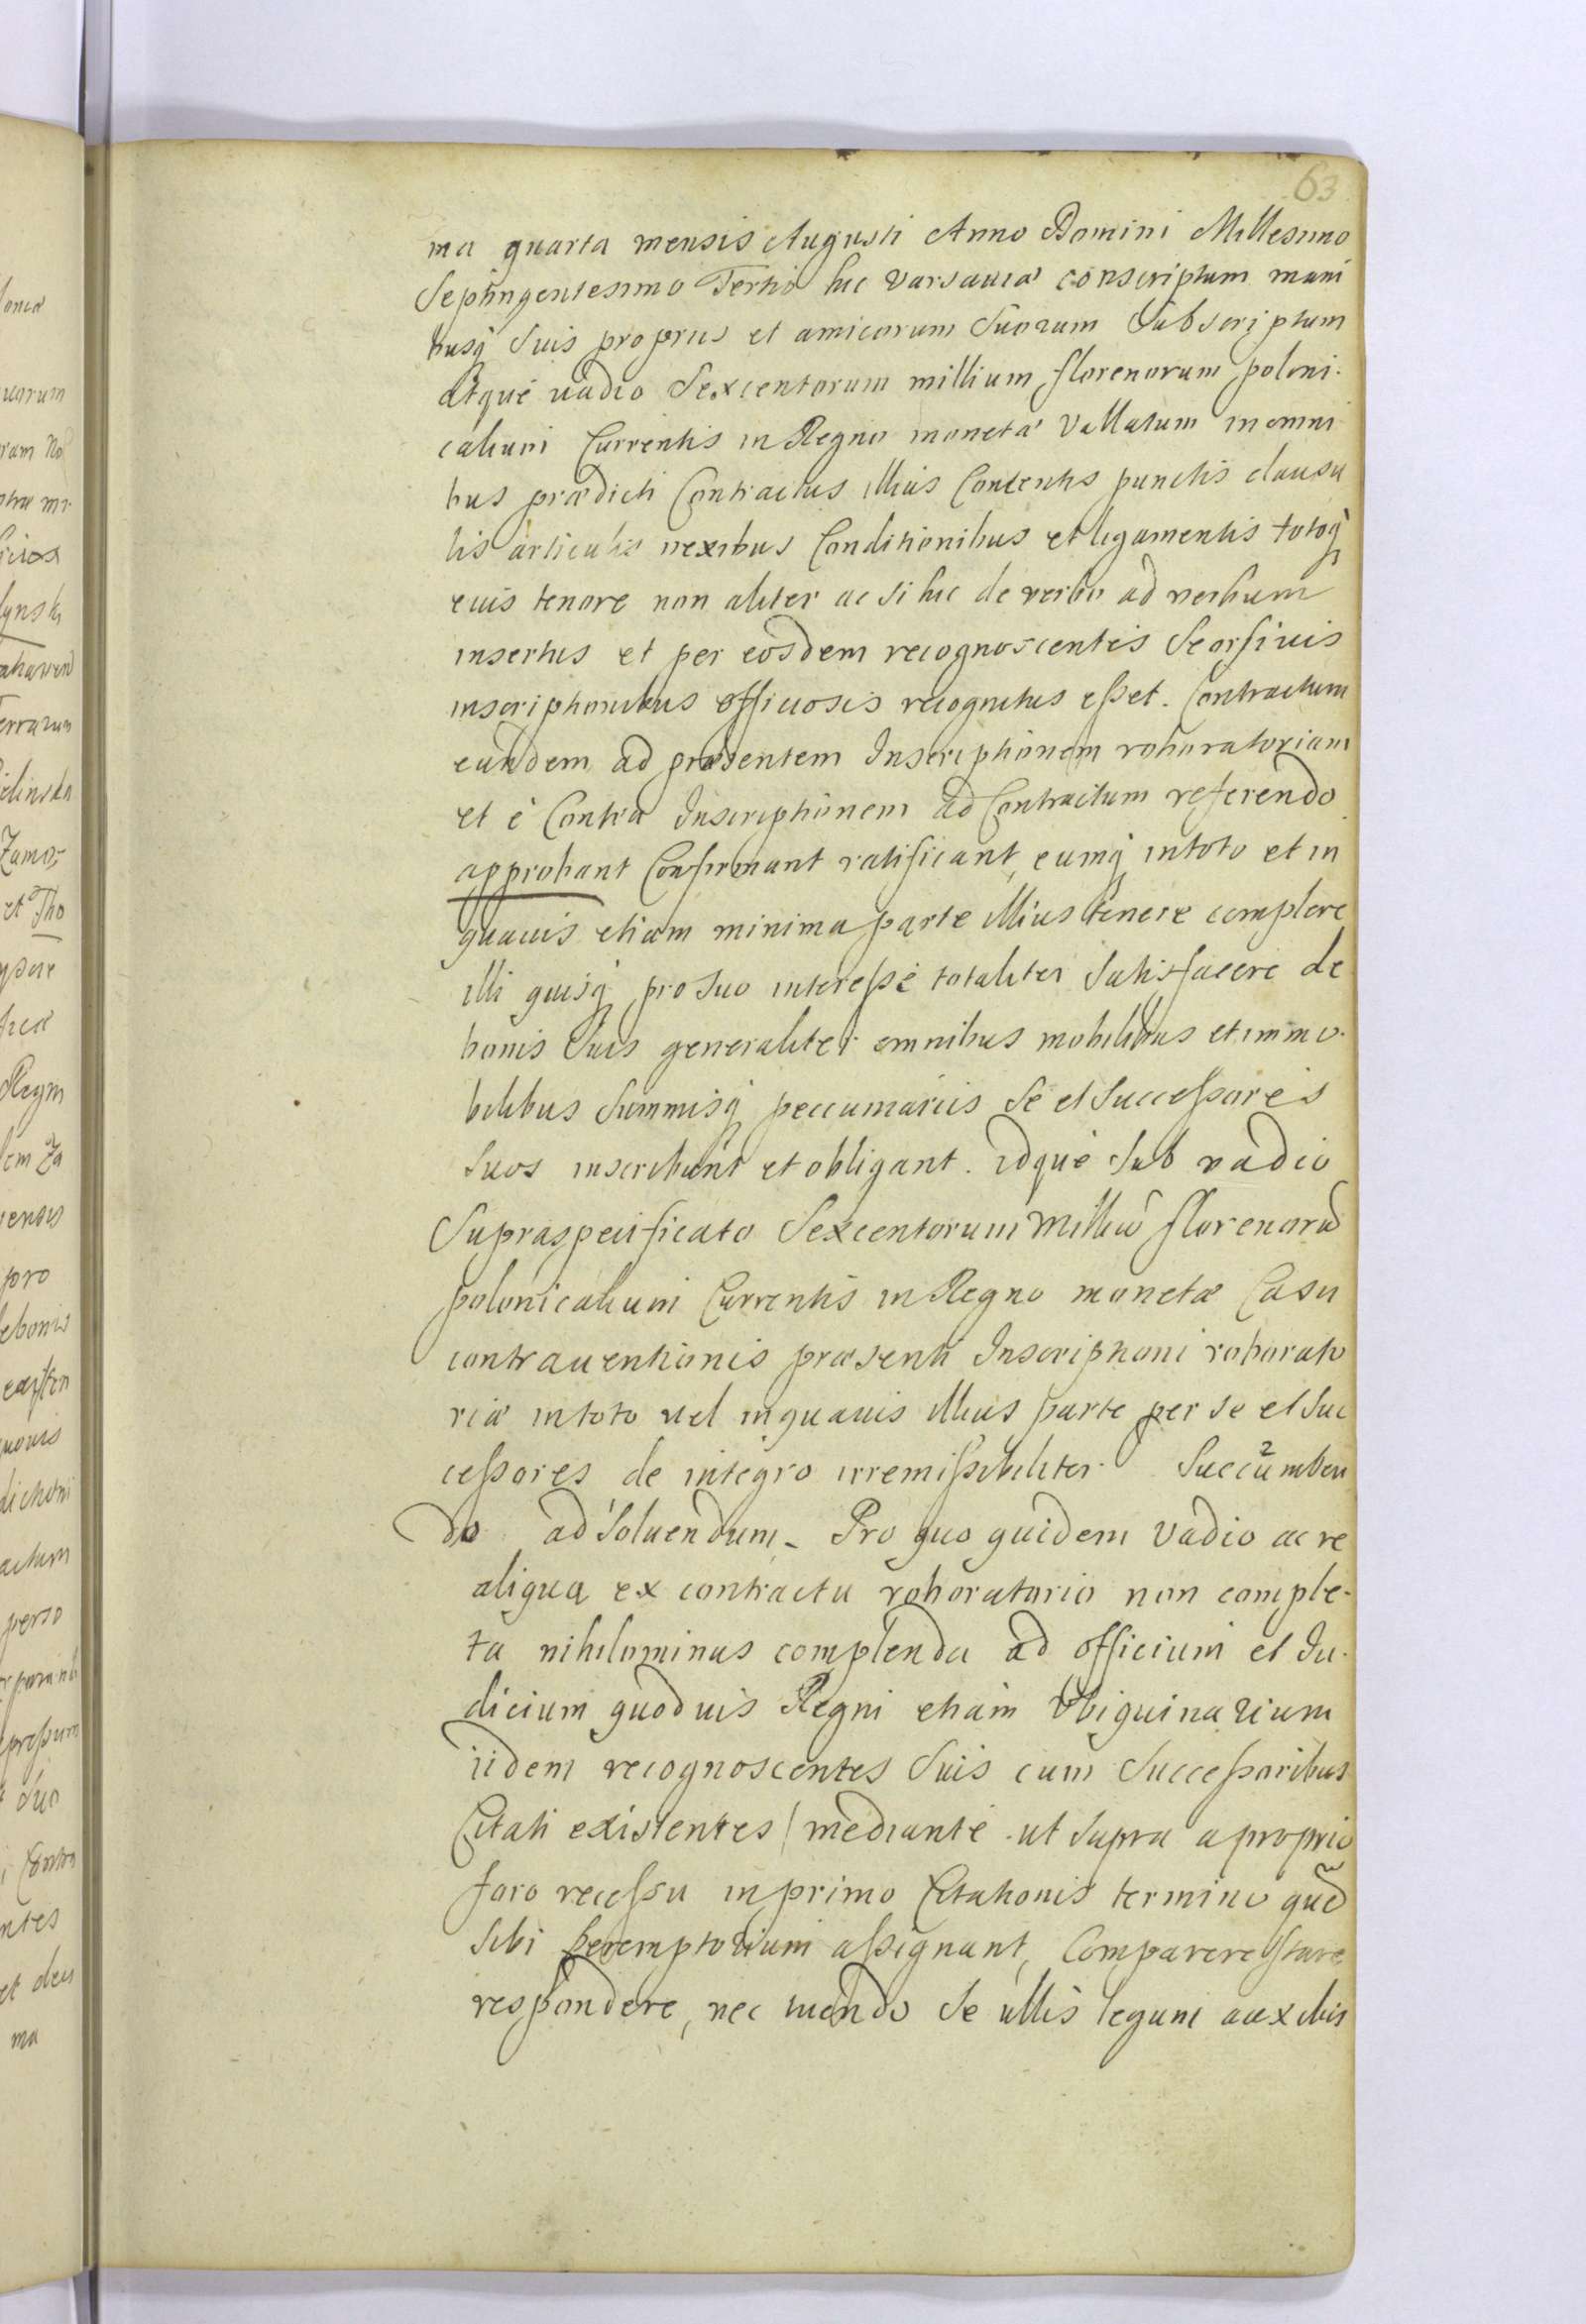 63
ma quarta mensis Augusti Anno Domini Millesimo
Septingentesimo Tertio hic Varsaviæ conscriptum mani
busq suis proprÿs et amicorum Suorum Subscriptum
atque uadio Sexcentorum millium florenorum poloni-
calium Currentis in Regno monetæ Vallatum in omni
bus prædicti Contractus illius Contentis punctis clausu
lis articulis nexibus Conditionibus et ligamentis totoq
euis tenore non aliter ac si hic de verbo ad verbum
insertus et per eosdem recognoscentes Seorsiuis
inscriptionibus officiosis recognitus esset. Contractum
eundem ad præsentem Inscriptionem roboratoriam
et è Contra Inscriptionem ad Contractum referendo
approbant Confirmant ratificant, eumq in toto et in
quauis etiam minima parte illius tenere complere
illi quisq pro Suo interesse totaliter Satisfacere de
bonis Suis generaliter omnibus mobilibus et immo-
bilibus Summisq peccuniariis Se et Successores
Suos inscribunt et obligant. idque Sub vadio
Supraspecificato Sexcentorum Milliu florenoru
polonicalium Currentis in Regno monetæ Casu
contrauentionis præsenti Inscriptioni roborato
riæ in toto uel in quauis illius parte per se et Suc
cessores de integro irremissibiliter Succumben
2
do ad Soluendum. Pro quo quidem Vadio ac re
aliqua ex contractu roboratorio non comple-
ta nihilominus complenda ad officium et Iu-
dicium quoduis Regni etiam Vbiquinarium
iidem recognoscentes Suis cum Successoribus
Citati existentes / mediante ut supra a proprio
foro recessu in primo Citationis termino que
sibi peremptorium assignant, Comparere stare
respondere, nec tuendo Se ullis legum auxiliis